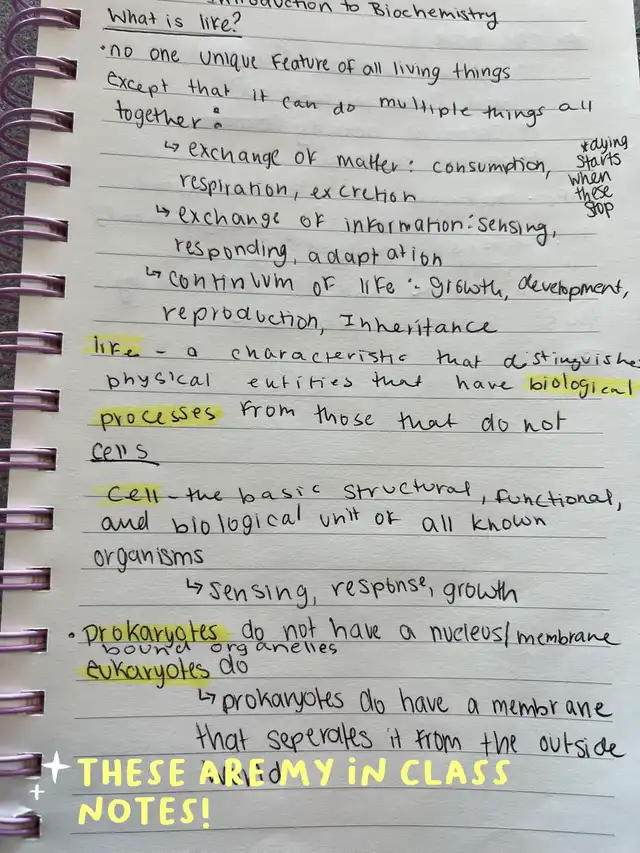 Introduction to Biochemistry
What is life?
• no one unique feature of all living things
except that it can do multiple things all
together:
↳ exchange of matter: consumption,
respiration, excretion
*dying
starts
when
these
stop
↳ exchange of information: sensing,
responding, adaptation
↳ continuum of life: growth, development,
reproduction, Inheritance
life - a characteristic that distinguishes
physical entities that have biological
processes from those that do not
cells
cell - the basic structural, functional,
and biological unit of all known
organisms
↳ sensing, response, growth
• prokaryotes do not have a nucleus/membrane
bound organelles
eukaryotes do
↳ prokaryotes do have a membrane
that seperates it from the outside
THESE ARE MY iN CLASS
NOTES!